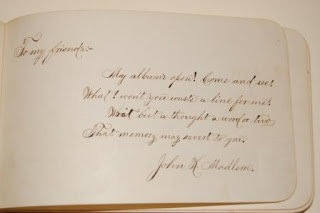 To my friends
My album's open! Come and see!
What! won't you write a line for me?
Writ but a thought a word or two
That memory may revert to you.
John H. Madlem.